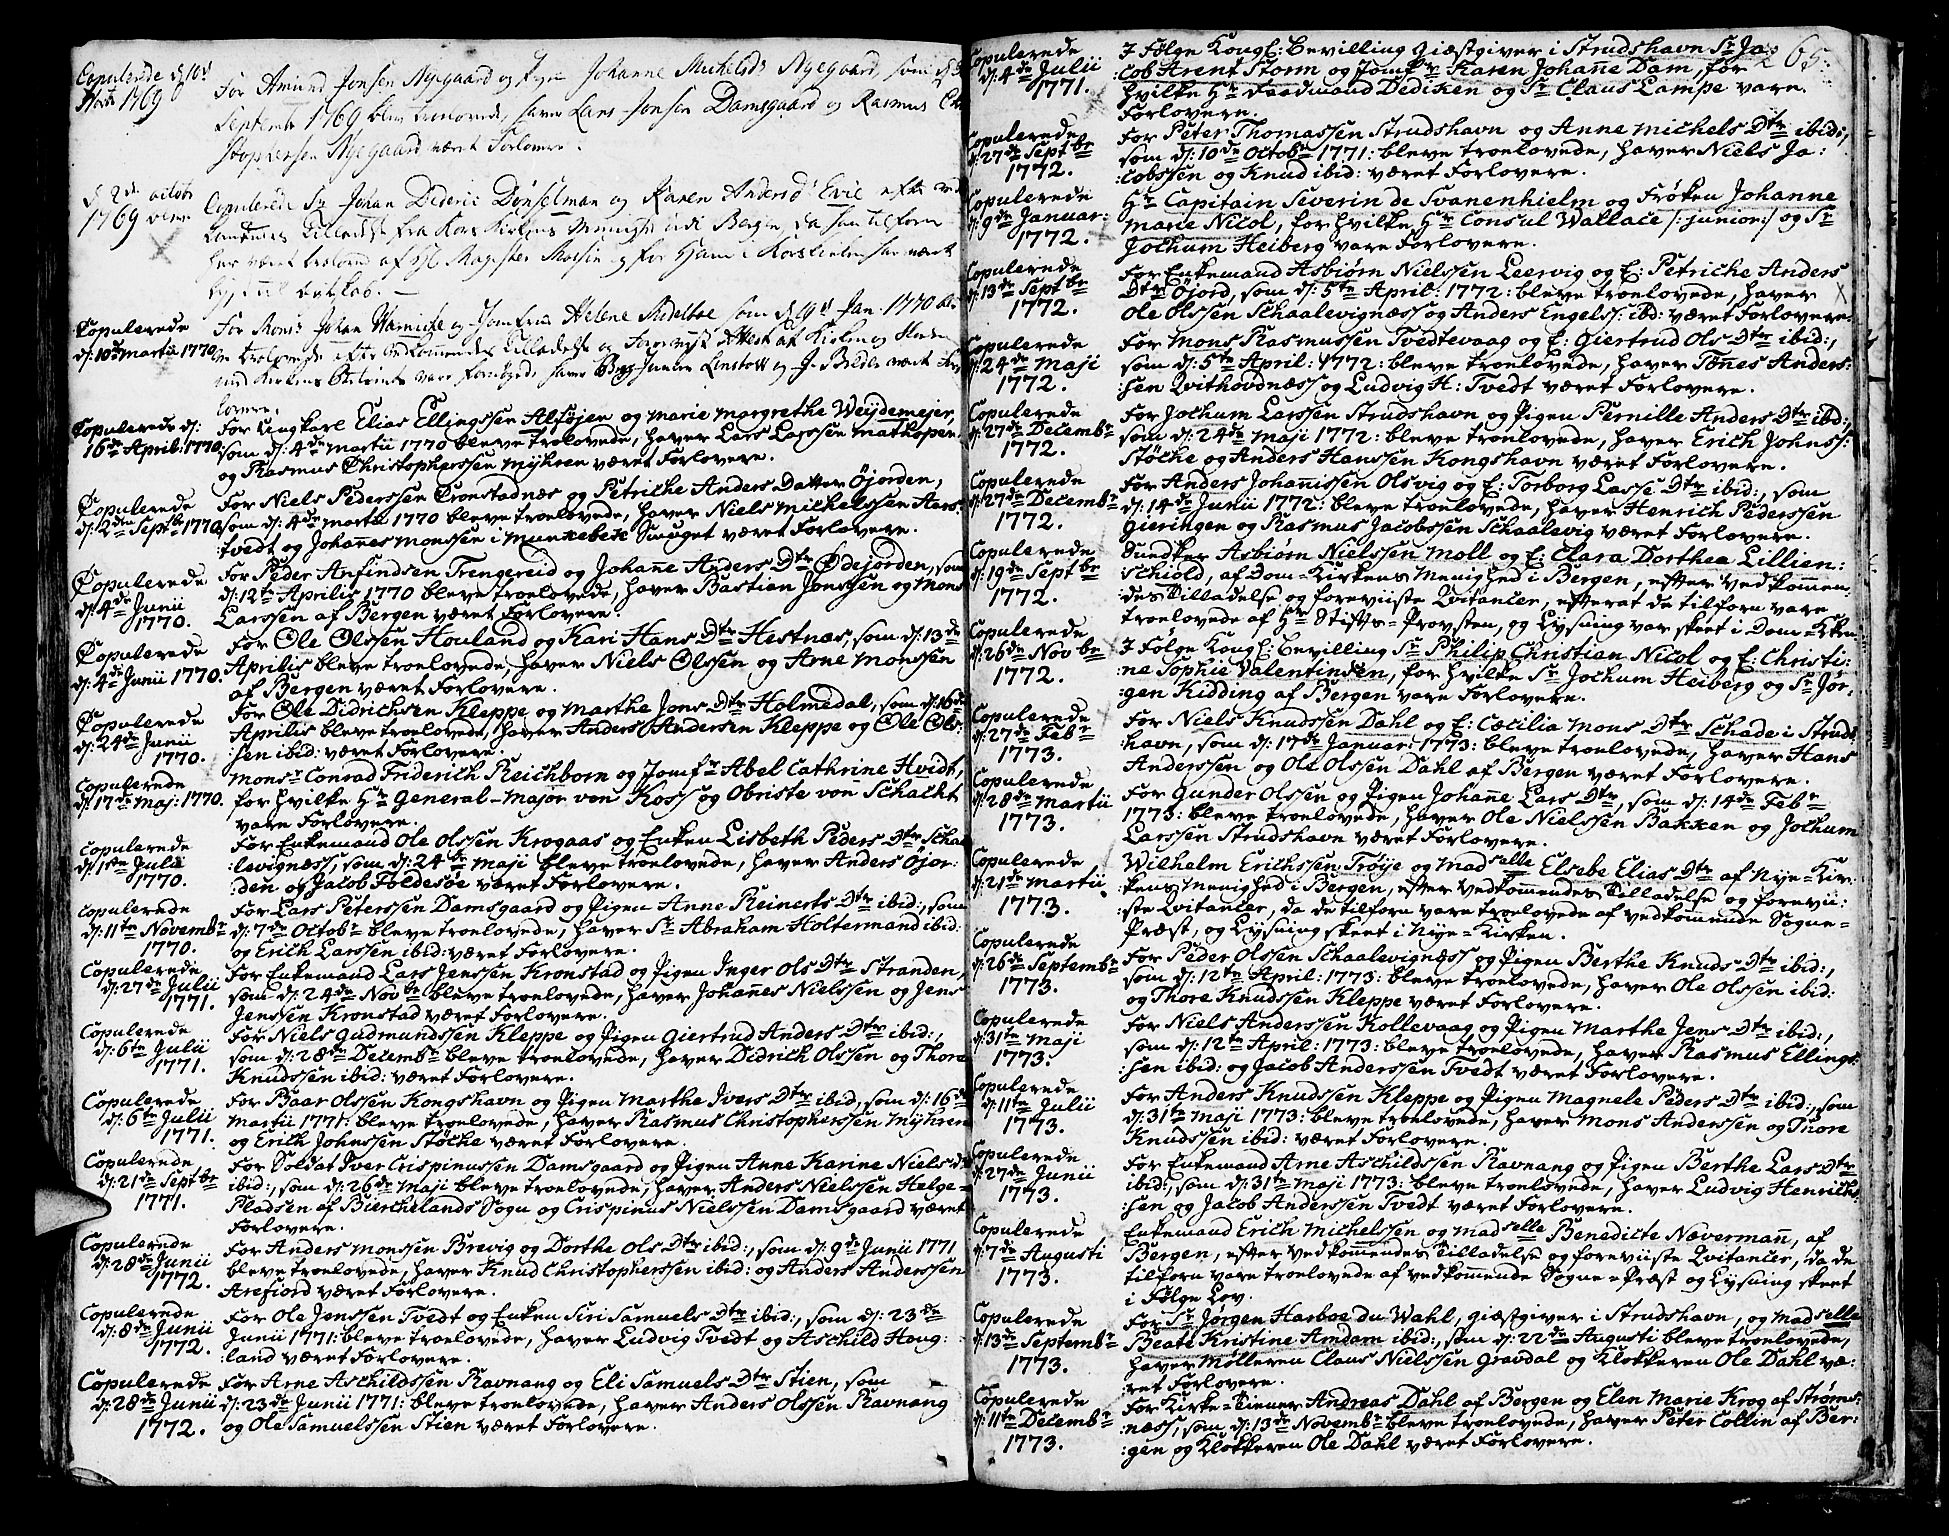 Copulerede d. 10d
1769
For Amund Jonsen Nyegaard og Pigen Johanne Michelsd: Nyegaard, som d. 3
September 1769 blev trolovede, haver Lars Jonsen Damsgaard og Rasmus Chri
stophersen Nyegaard været Forlovere.
d. 2d: octobr
1769 blev
Copulerede Sr Johan Dideric Dönselman og Karen Andersd: Evie efter ved
kommendes Tilladelse fra Kors Kirkens Menighed udi Bergen, da han tilforn
har været trolovet af Magister og for ham i Korskirken har været
lyst til Ægteskab.
Copulerede
d: 10de Martii 1770.
For Mons: Johan Warnicke og Jomfrue Helene Sidelboe som d. 19d Jan. 1770 blev
trolovede efter vedkommendes Tilladelse og
med Kirkens vare fornöyede haver og J. været For
lovere.
Copulerede d:
16de April: 1770.
For Ungkarl Elias Ellingssen Alsföjen og Marie Margrethe Weijdemejer,
som d: 4de Martii 1770 bleve trolovede, haver Lars Larssen Mathopen
og Rasmus Christopherssen Myhren været Forlovere.
Copulerede
d: 2den Septbr 1770.
For Niels Pederssen Cronstadnæs og Petriche Anders Datter Öjorden,
som d: 4de Martii 1770 bleve troelovede, haver Niels Michelssen Hars-
tvedt og Johannes Monssen i Munkebek Smuget været Forlovere.
Copulerede
d: 4de Junii
1770.
For Peder Anfindsen Trengereid og Johane Anders Dtr Ödejorden, som
d: 12te Aprilis 1770 bleve troelovede, haver Bastien Jonssen og Mons
Larssen af Bergen været Forlovere.
Copulerede
d: 4de Junii 1770.
For Ole Olssen Houland og Kari Hans Dtr Hestnæs, som d: 13de
Aprilis bleve troelovede, haver Niels Olssen og Arne Monssen
af Bergen været Forlovere.
Copulerede
d: 24de Junii
1770.
For Ole Didrichsen Kleppe og Marthe Jons Dtr Holmedal, som d: 16de
Aprilis bleve troelovede, haver Anders Andersen Kleppe og Ole Ols-
sen ibid: været Forlovere.
Copulerede
d: 17de Maj: 1770.
Monsr Conrad Friderich Reichborn og Jomfr Abel Cathrine Hvidt,
for hvilke Hr General-Major von Koss og Obriste von Schackt
vare Forlovere.
Copulerede
d: 1ste Julii
1770.
For Enkemand Ole Olssen Krogaas og Enken Lisbeth Peders Dtr Schaa
levignæss, som d: 24de Maji bleve troelovede, haver Anders Öjor:
:den og Jacob Foldesöe været Forlovere.
Copulerede
d: 11te Novembr
1770.
For Lars Peterssen Damsgaard og Pigen Anne Reinerts Dtr ibid:, som
d: 7de Octobr bleve troelovede, haver Sr Abraham Holtermand ibid:
og Erich Larssen ibid: været Forlovere.
Copulerede
d: 27de Julii
1771.
For Enkemand Lars Jenssen Kronstad og Pigen Inger Ols Dtr Stranden,
som d: 24de Novbr bleve troelovede, haver Johannes Nielssen og Jens
Jenssen Kronstad været Forlovere.
Copulerede
d: 6te Julii
1771.
For Niels Gudmundssen Kleppe og Pigen Giertrud Anders Dtr ibid:,
som d: 28de Decembr bleve troelovede, haver Didrich Olssen og Thore
Knudssen ibid: været Forlovere.
Copulerede
d: 6te Julii
1771.
For Baar Olssen Kongshavn og Pigen Marthe Ivers Dtr ibid:, som d: 16de
Martii 1771: bleve troelovede, haver Rasmus Christopherssen Myhren
og Erich Johnssen Stöcke været Forlovere.
Copulerede
d: 21de Septbr
1771.
For Soldat Iver Crispinussen Damsgaard og Pigen Anne Karine Niels dtr
ibid:, som d: 26de Maji bleve troelovede, haver Anders Nielssen Helge-
Pladsen af Bierchelands Sogn og Crispinus Nielssen Damsgaard været
Forlovere.
Copulerede
d: 28de Junii
1772.
For Anders Monssen Brevig og Dorthe Ols Dtr ibid:, som d: 9de Junii 1771
bleve troelovede, haver Knud Christopherssen ibid: og Anders Anderssen
Arefiord været Forlovere.
Copulerede
d: 8de Junii
1772.
For Ole Jenssen Tvedt og Enken Siri Samuels Dtr ibid:, som d: 23de
Junii 1771: bleve troelovede, haver Ludvig Tvedt og Aschild Houg-
:land været Forlovere.
Copulerede
d: 28de Junii
1772.
For Arne Aschildssen Ravnang og Eli Samuels Dtr Stien, som
d: 23de Junii 1771: bleve troelovede, haver Anders Olssen Ravnang
og Ole Samuelssen Stien været Forlovere.
265.
Copulerede
d: 4de Julii
1771.
I Følge Kongl: Bevilling Giæstgiver i Strudshavn Sr Ja:
:cob Arent Storm og Jomfr Karen Johane Dam, for
hvilke Hr Faadmand Dediken og Sr Claus Lampe vare
Forlovere.
Copulerede
d: 27de Septbr
1772.
For Peter Thomassen Strudshavn og Anne Michels Dtr ibid:,
som d: 10de Octobr 1771: bleve troelovede, haver Niels Ja:
:cobssen og Knud ibid: været Forlovere.
Copulerede
d: 9de Januar:
1772.
Hr Capitain Severin de Svanenhielm og Frøken Johanne
Marie Nicol, for hvilke Hr Consul Wallace /:junior:/ og Sr
Jochum Heiberg vare Forlovere.
Copulerede
d: 13de Septbr
1772.
For Enkemand Asbiørn Nielssen Leervig og E: Petriche Anders
Dtr Öjord, som d: 5te April: 1772: bleve troelovede, haver
Ole Olssen Schaalevignæss og Anders Engels: ibd: været Forlovere.
Copulerede
d: 24de Maji
1772.
For Mons Rasmussen Tvedtevaag og E: Giertrud Ols Dtr ibid:,
som d: 5te April: 1772: bleve troelovede, haver Tönes Anders:
:sen Qvithovdnæss og Ludvig H: Tvedt været Forlovere.
Copulerede
d: 27de Decembr
1772.
For Jochum Larssen Strudshavn og Pigen Pernille Anders Dtr ibd:,
som d: 24de Maji 1772: bleve troelovede, haver Erich Johnss:
Stöcke og Anders Hanssen Kongshavn været Forlovere.
Copulerede
d: 27de Decembr
1772.
For Anders Johanissen Olsvig og E: Torborg Lasse Dtr ibid:, som
d: 14de Junii 1772: bleve troelovede, haver Henrich Pederssen
Gieringen og Rasmus Jacobssen Schaalevig været Forlovere.
Copulerede
d: 19de Septbr
1772.
Snedker Asbiörn Nielssen Moll og E: Clara Dorthea Lillien:
:schiold, af Dom-Kirkens Menighed i Bergen, efter Vedkommen:
des Tilladelse og foreviiste Qvitancer, efterat de tilforn vare
troelovede af Hr Stifts-Provsten, og Lysning var skeet i Dom-Kken
Copulerede
d: 26de Novbr
1772.
I Følge Kongl: Bevilling Sr Philip Christian Nicol og E: Christi:
:ne Sophie Valentinsen, for hvilke Sr Jochum Heiberg og Sr Jör-
gen Kidding af Bergen vare Forlovere.
Copulerede
d: 27de Febr
1773.
For Niels Knudssen Dahl og E: Cæcilia Mons Dtr Schade i Struds
:havn, som d: 17de Januar: 1773: bleve troelovede, haver Hans
Anderssen og Ole Olssen Dahl af Bergen været Forlovere.
Copulerede
d: 28de Martii
1773.
For Gunder Olssen og Pigen Johane Lars Dtr, som d: 14de Febr
1773: bleve troelovede, haver Ole Nielssen Bakken og Jochum
Larssen Strudshavn været Forlovere.
Copulerede
d: 21de Martii
1773.
Wilhelm Erichssen Tröije og Madselle Elsebe Elias Dtr af Nye-Kir-
:kens Menighed i Bergen, efter Vedkomendes Tilladelse og forevii:
:ste Qvitancer, da de tilforn vare troelovede af vedkommende Sogne-
Præst, og Lysning skeet i Nye-Kirken.
Copulerede
d: 26de Septembr
1773.
For Peder Olssen Schaalevignæss og Pigen Berthe Knuds Dtr ibid:,
som d: 12te April: 1773: bleve troelovede, haver Ole Olssen ibid:
og Thore Knudssen Kleppe været Forlovere.
Copulerede
d: 31te Maji
1773.
For Niels Anderssen Kollevaag og Pigen Marthe Jens Dtr ibid:,
som d: 12te April: 1773: bleve troelovede, haver Rasmus Ellings:
:sen ibid: og Jacob Anderssen Tvedt været Forlovere.
Copulerede
d: 11te Julii
1773.
For Anders Knudssen Kleppe og Pigen Magnele Peders Dtr ibid:, som
d: 31te Maji 1773: bleve troelovede, haver Mons Anderssen og Thore
Knudssen ibid: været Forlovere.
Copulerede
d: 27de Junii
1773.
For Enkemand Arne Aschildssen Ravnang og Pigen Berthe Lars Dtr
ibid:, som d: 31te Maji 1773: bleve troelovede, haver Ludvig Henrich:
:sen og Jacob Anderssen Tvedt været Forlovere.
Copulerede
d: 7de Augusti
1773.
Enkemand Erich Michelssen og Madselle Benedicte Noverman, af
Bergen, efter Vedkommendes Tilladelse og foreviiste Qvitancer, da de
tilforn vare troelovede af vedkommende Sogne-Præst og Lysning skeet
i Følge Lov.
Copulerede
d: 13de Septembr
1773.
For Sr Jørgen Harboe du Wahl, Giæstgiver i Strudshavn, og Madselle
Beate Kristine Amdam ibid:, som d: 22de Augusti bleve troelovede,
haver Mølleren Claus Nielssen Gravdal og Klokkeren Ole Dahl væ:
:ret Forlovere.
Copulerede
d: 11te Decembr
1773.
For Kirke-Tiener Andreas Dahl af Bergen og Elen Marie Krog af Ströms:
:næss, som d: 13de Novembr bleve troelovede, haver Peter Collin af Ber:
:gen og Klokkeren Ole Dahl været Forlovere.